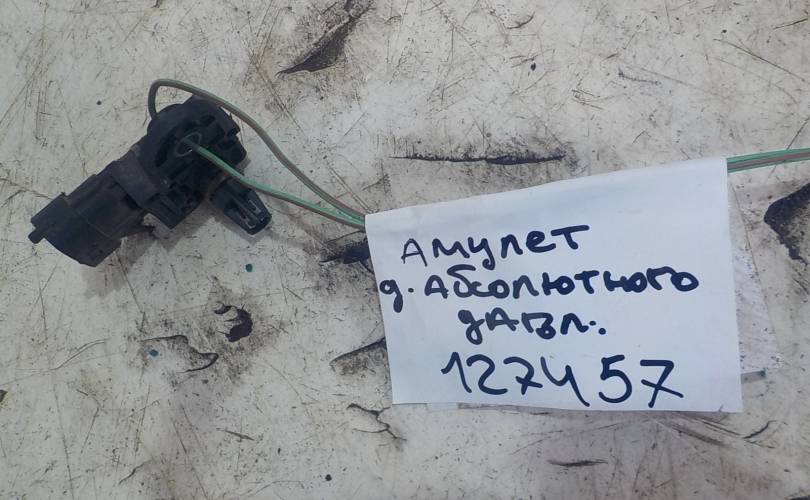 Амулет
д. Абсолютного
давл.
127457